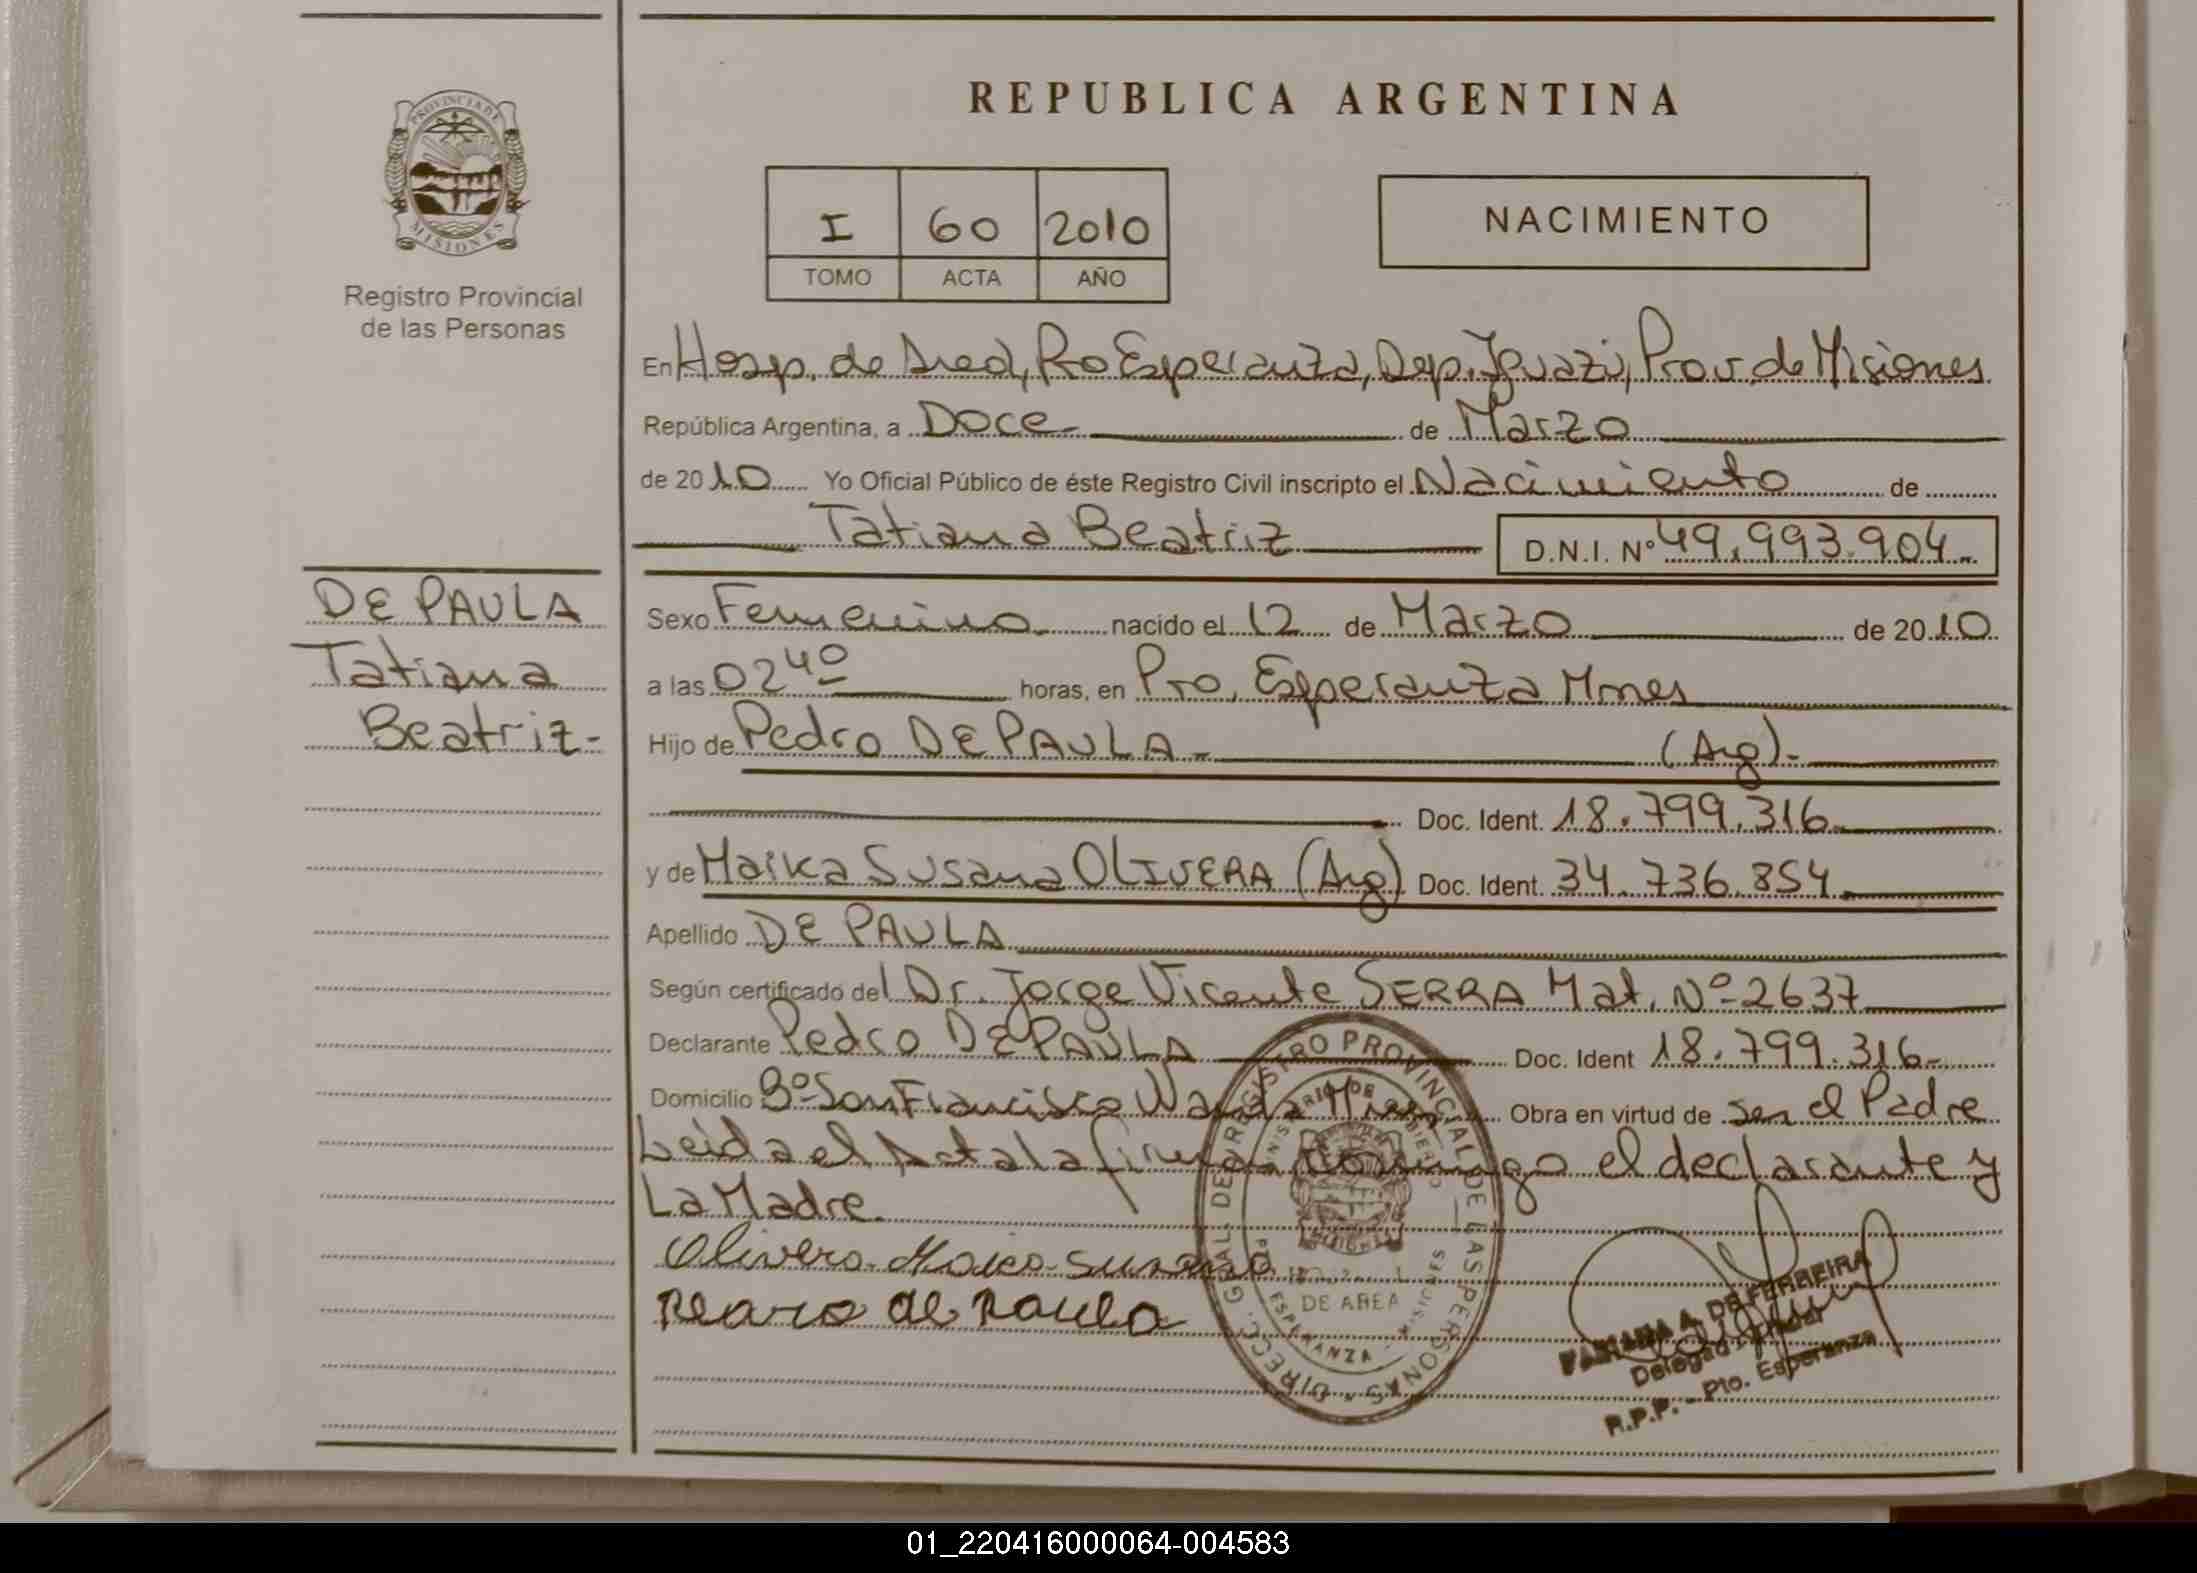 PROVINCIA DE
MISIONES
Registro Provincial
de las Personas
DE PAULA
Tatiana
Beatriz-
REPUBLICA ARGENTINA
I 60 2010
TOMO ACTA AÑO
NACIMIENTO
En Hosp. de Area, Pto Esperanza, Dep. Iguazú, Prov. de Misiones
República Argentina, a Doce- de Marzo
de 2010 Yo Oficial Público de éste Registro Civil inscripto el Nacimiento de
Tatiana Beatriz D.N.I. Nº 49.993.904-
Sexo Femenino nacido el 12 de Marzo de 2010
a las 02 40 horas, en Pto. Esperanza Mnes
Hijo de Pedro DE PAULA- (Arg)-
Doc. Ident. 18.799.316-
y de Maika Susana OLIVERA (Arg) Doc. Ident. 34.736.854
Apellido DE PAULA
Según certificado del Dr. Jorge Vicente SERRA Mat. Nº 2637
Declarante Pedro DE PAULA Doc. Ident 18.799.316-
Domicilio Bº San Francisco Wanda Mnes Obra en virtud de ser el Padre
Leida el Acta la firman conmigo el declarante y
La Madre.
Olivera Maica Susana
Pedro de Paula
DIRECC. GRAL. DE REGISTRO PROVINCIAL DE LAS PERSONAS
MINISTERIO DE GOBIERNO
DE AREA
ESPERANZA - MISIONES
A. DE FERREIRA
R.P.P. - Pto. Esperanza
01_220416000064-004583